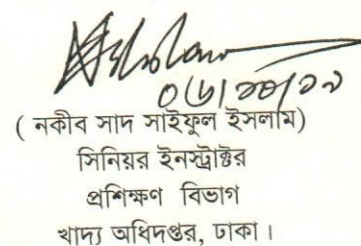 ( নকীব সাদ সাইফুল ইসলাম)
সিনিয়র ইনস্ট্রাক্টর
প্রশিক্ষণ বিভাগ
খাদ্য অধিদপ্তর, ঢাকা।